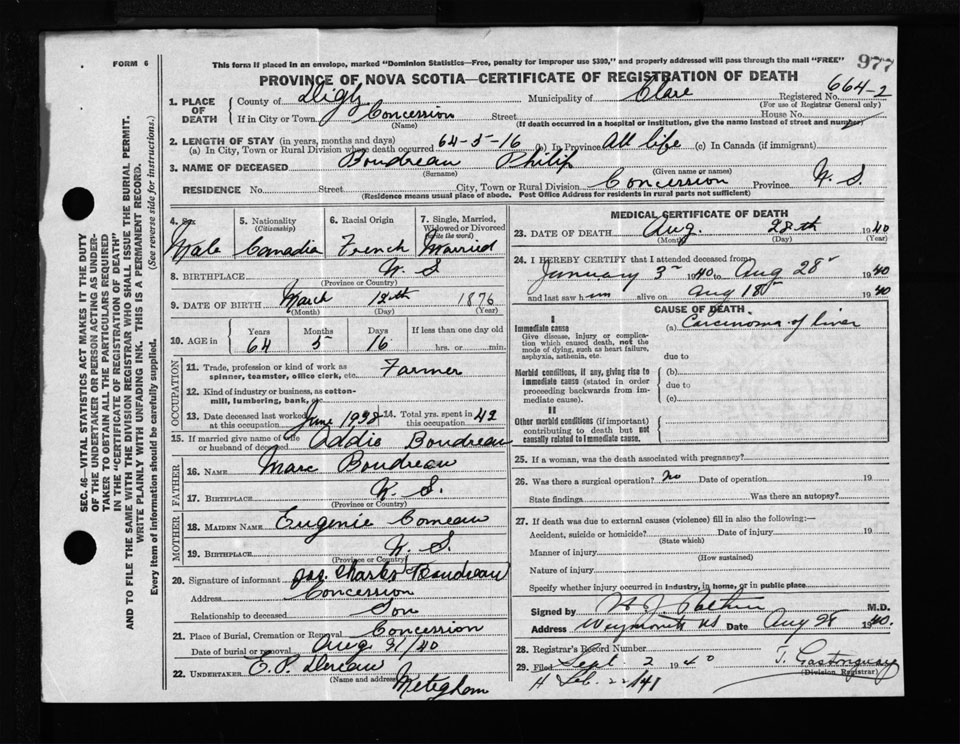 FORM 6
This form if placed in an envelope, marked "Dominion Statistics—Free, penalty for improper use $300," and properly addressed will pass through the mail "FREE"
977
PROVINCE OF NOVA SCOTIA—CERTIFICATE OF REGISTRATION OF DEATH
664-2
1. PLACE OF DEATH County of Digby Municipality of Clare Registered No.
(For use of Registrar General only)
If in City or Town Concession Street House No.
(Name) (If death occurred in a hospital or institution, give the name instead of street and number)
2. LENGTH OF STAY (in years, months and days)
(a) In City, Town or Rural Division where death occurred 64-5-16 (b) In Province All life (c) In Canada (if immigrant)
3. NAME OF DECEASED Boudreau Philip
(Surname) (Given name or names)
RESIDENCE No. Street City, Town or Rural Division Concession Province N. S.
(Residence means usual place of abode. Post Office Address for residents in rural parts not sufficient)
SEC. 46—VITAL STATISTICS ACT MAKES IT THE DUTY
OF THE UNDERTAKER OR PERSON ACTING AS UNDER-
TAKER TO OBTAIN ALL THE PARTICULARS REQUIRED
IN THE "CERTIFICATE OF REGISTRATION OF DEATH"
AND TO FILE THE SAME WITH THE DIVISION REGISTRAR WHO SHALL ISSUE THE BURIAL PERMIT.
WRITE PLAINLY WITH UNFADING INK. THIS IS A PERMANENT RECORD.
Every item of information should be carefully supplied. (See reverse side for instructions.)
4. Sex 5. Nationality 6. Racial Origin 7. Single, Married,
(Citizenship) Widowed or Divorced
(Write the word)
Male Canadia French Married
8. BIRTHPLACE N. S
(Province or Country)
9. DATE OF BIRTH March 12th 1876
(Month) (Day) (Year)
10. AGE in Years Months Days If less than one day old
64 5 16 hrs. or min.
OCCUPATION
11. Trade, profession or kind of work as Farmer
spinner, teamster, office clerk, etc.
12. Kind of industry or business, as cotton-
mill, lumbering, bank, etc.
13. Date deceased last worked at this occupation June 1938 14. Total yrs. spent in this occupation 42
15. If married give name of wife
or husband of deceased Addie Boudreau
FATHER
16. NAME Marc Boudreau
17. BIRTHPLACE N. S.
(Province or Country)
MOTHER
18. MAIDEN NAME Eugenie Comeau
19. BIRTHPLACE N. S.
(Province or Country)
20. Signature of informant Charles Boudreau
Address Concession
Relationship to deceased Son
21. Place of Burial, Cremation or Removal Concession
Date of burial or removal Aug 31/40
22. UNDERTAKER E. P.
(Name and address) Meteghan
MEDICAL CERTIFICATE OF DEATH
23. DATE OF DEATH Aug. 28th 1940
(Month) (Day) (Year)
24. I HEREBY CERTIFY that I attended deceased from
January 3rd 1940 to Aug 28th 1940
and last saw him alive on Aug 18th 1940
CAUSE OF DEATH
I
Immediate cause (a) Carcinoma of liver
Give disease, injury or complica-
tion which caused death, not the
mode of dying, such as heart failure,
asphyxia, asthenia, etc.
due to
Morbid conditions, if any, giving rise to (b)
immediate cause (stated in order due to
proceeding backwards from im-
mediate cause). (c)
II
Other morbid conditions (if important)
contributing to death but not
causally related to immediate cause.
25. If a woman, was the death associated with pregnancy?
26. Was there a surgical operation? No Date of operation 19
State findings Was there an autopsy?
27. If death was due to external causes (violence) fill in also the following:—
Accident, suicide or homicide? Date of injury 19
(State which)
Manner of injury
(How sustained)
Nature of injury
Specify whether injury occurred in industry, in home, or in public place
Signed by M.D.
Address Weymouth NS Date Aug 28 1940.
28. Registrar's Record Number
29. Filed Sept 2 1940 T. Gastonguay
(Division Registrar)